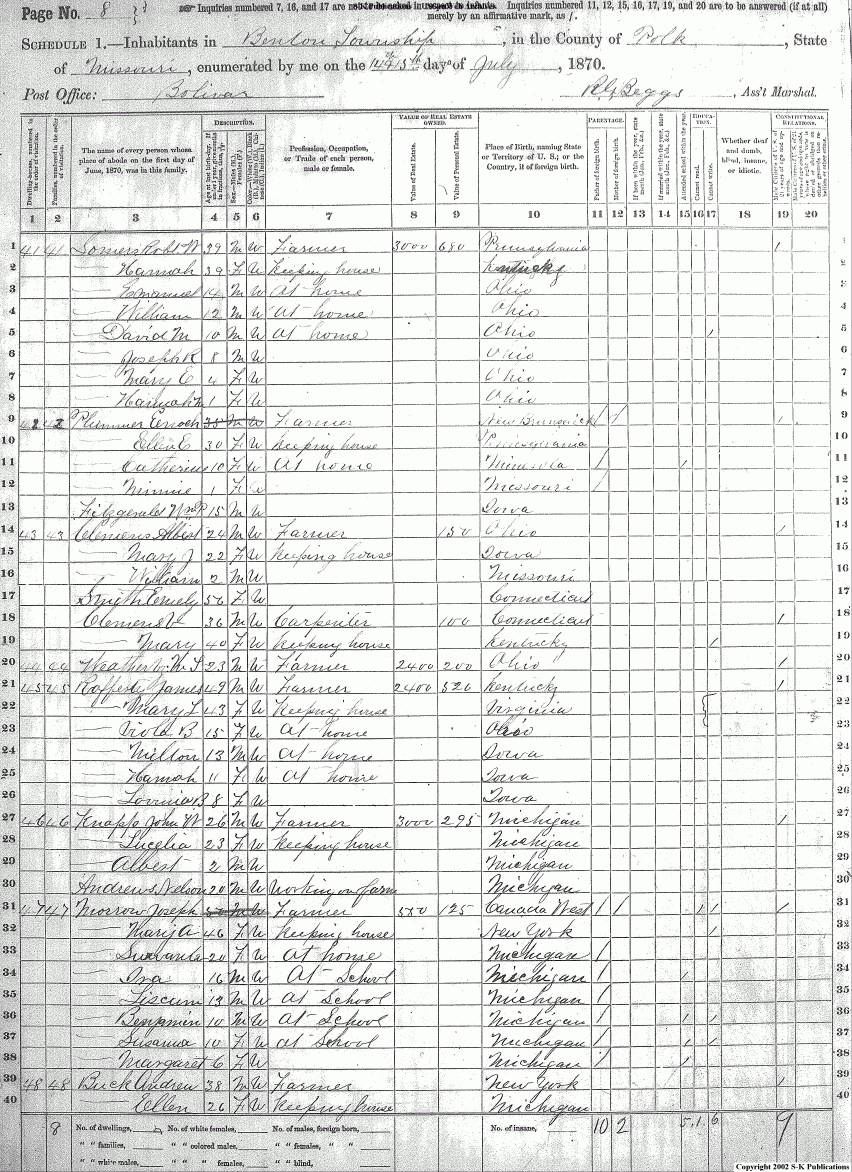 Page No. 8
Inquiries numbered 7, 16, and 17 are not to be asked in respect to infants. Inquiries numbered 11, 12, 15, 16, 17, 19, and 20 are to be answered (if at all)
merely by an affirmative mark, as /.
SCHEDULE 1.—Inhabitants in Benton Township, in the County of Polk, State
of Missouri, enumerated by me on the day of July, 1870.
Post Office: Bolivar R.G. Beggs, Ass't Marshal.
DESCRIPTION. VALUE OF REAL ESTATE OWNED. PARENTAGE. EDUCATION. CONSTITUTIONAL RELATIONS.
The name of every person whose place of abode on the first day of June, 1870, was in this family.
Profession, Occupation, or Trade of each person, male or female.
Value of Real Estate.
Value of Personal Estate.
Place of Birth, naming State or Territory of U. S.; or the Country, if of foreign birth.
Father of foreign birth.
Mother of foreign birth.
Attended school within the year.
Cannot read.
Cannot write.
Whether deaf and dumb, blind, insane, or idiotic.
1 2 3 4 5 6 7 8 9 10 11 12 13 14 15 16 17 18 19 20
1 41 41 Somers Robt W 39 M W Farmer 3000 680 Pennsylvania / 1
2 — Hannah 39 F W Keeping house Kentucky 2
3 — Emanuel 14 M W At home Ohio 3
4 — William 12 M W At home Ohio 4
5 — David M 10 M W At home Ohio / 5
6 — Joseph R 8 M W Ohio 6
7 — Mary E 4 F W Ohio 7
8 — Hannah M 1 F W Ohio 8
9 42 42 Plummer Enoch 38 M W Farmer New Brunswick / / / 9
10 — Ellen E 30 F W Keeping house Pennsylvania 10
11 — Catherine 10 F W At home Minesota / / 11
12 — Minnie 1 F W Missouri / 12
13 Fitzgerald Wm R 15 M W Iowa 13
14 43 43 Clemens Albist 24 M W Farmer 150 Ohio / 14
15 — Mary J 22 F W Keeping house Iowa 15
16 — William 2 M W Missouri 16
17 Smith Emely 56 F W Connecticut 17
18 Clemens 36 M W Carpenter 100 Connecticut / 18
19 — Mary 40 F W Keeping house Kentucky / 19
20 44 44 Weather 23 M W Farmer 2400 200 Ohio / 20
21 45 45 Rafferty James 49 M W Farmer 2400 520 Kentucky / 21
22 — Mary L 43 F W Keeping house Virginia 22
23 — Viola B 15 F W At home Ohio 23
24 — Milton 13 M W At home Iowa 24
25 — Hannah 11 F W At home Iowa 25
26 — Lovinia B 8 F W Iowa 26
27 46 46 Knapp John W 26 M W Farmer 3000 295 Michigan / 27
28 — Lucelia 23 F W Keeping house Michigan 28
29 — Albert 2 M W Michigan 29
30 Andrews Nelson 20 M W Working on farm Michigan 30
31 47 47 Morrow Joseph 50 M W Farmer 580 125 Canada West / / / / / 31
32 — Mary A 46 F W Keeping house New York / 32
33 — 20 F W At house Michigan / 33
34 — Ira 16 M W At School Michigan / / 34
35 — Liscum 13 M W At School Michigan / 35
36 — Benjamin 10 M W At School Michigan / / / 36
37 — Susanna 10 F W At School Michigan / / / 37
38 — Margaret 6 F W Michigan / / 38
39 48 48 Buck Andrew 38 M W Farmer New York / 39
40 — Ellen 26 F W Keeping house Michigan 40
8 No. of dwellings, No. of white females, No. of males, foreign born, No. of insane, 10 2 5 1 6 9
" " families, " " colored males, " " females, " "
" " white males, " " " females, " " blind,
Copyright 2002 S-K Publications